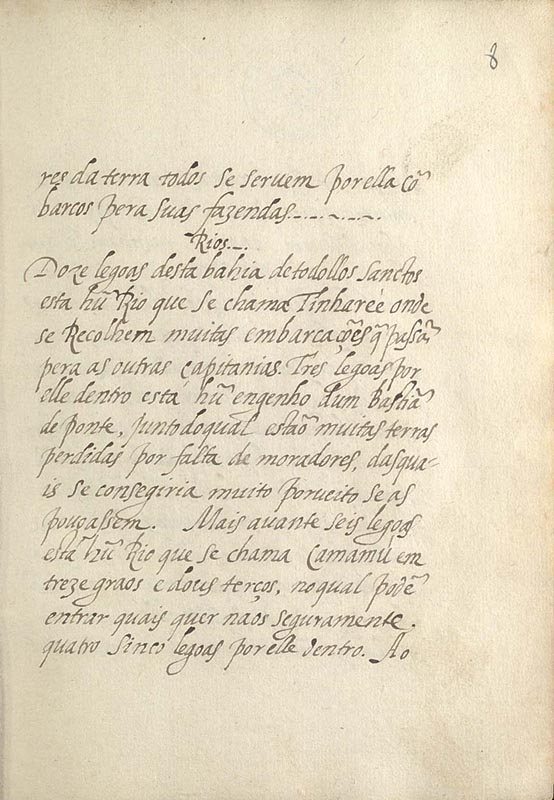 8
res da terra todos se seruem por ella cõ
barcos pera suas fazendas_._._._._.
Rios._.
Doze legoas desta bahia de todollos Sanctos
está hũ Rio que se chama Tinhareé onde
se Recolhem muitas embarcações q̃ passã
pera as outras capitanias. Tres legoas por
elle dentro está hũ engenho dum Bastiã
de ponte, junto do qual estão muitas terras
perdidas por falta de moradores, das qua-
is se consegiria muito proueito se as
pouoassem. Mais auante seis legoas
está hũ Rio que se chama Camamú em
treze graos e dous terços, no qual podẽ
entrar quais quer naos seguramente.
quatro sinco legoas por elle dentro. Ao